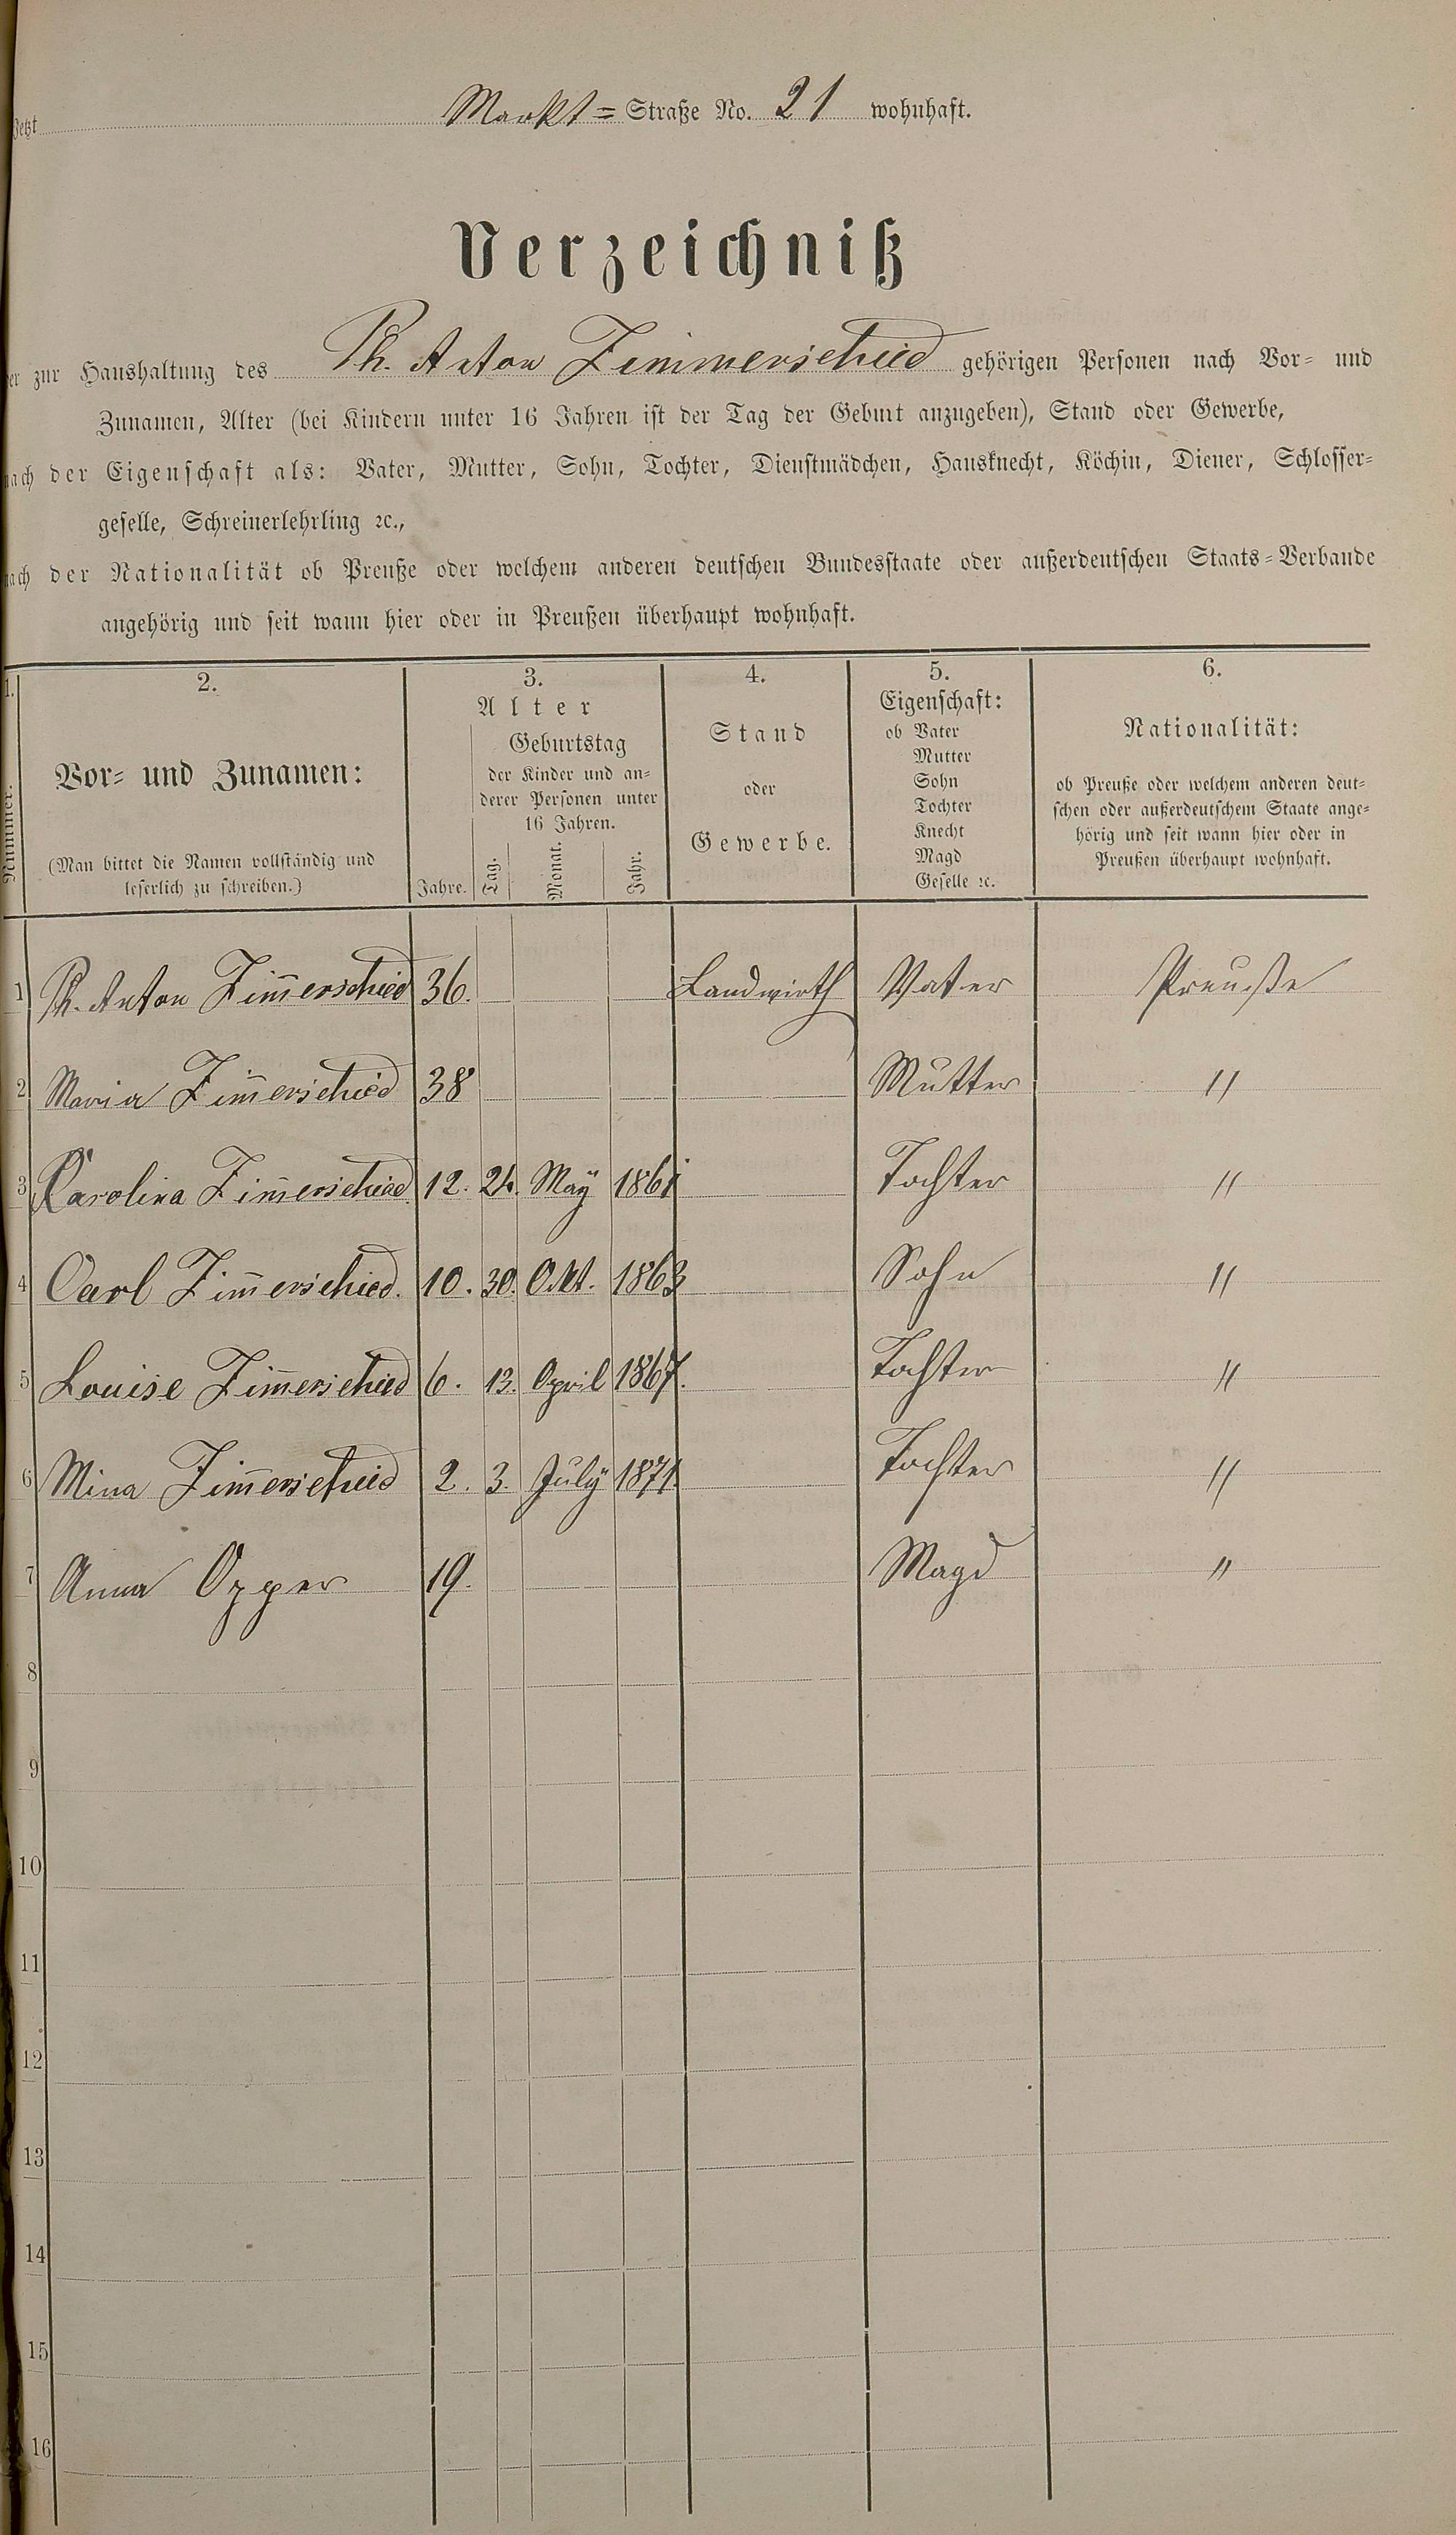 Jetzt Markt= Straße No. 21 wohnhaft.
Verzeichniß
der zur Haushaltung des Ph. Anton Zimmerschied gehörigen Personen nach Vor- und
Zunamen, Alter (bei Kindern unter 16 Jahren ist der Tag der Geburt anzugeben), Stand oder Gewerbe,
nach der Eigenschaft als: Vater, Mutter, Sohn, Tochter, Dienstmädchen, Hausknecht, Köchin, Diener, Schlosser-
geselle, Schreinerlehrling ꝛc.,
nach der Nationalität ob Preuße oder welchem anderen deutschen Bundesstaate oder außerdeutschen Staats-Verbande
angehörig und seit wann hier oder in Preußen überhaupt wohnhaft.
1. 2. 3. 4. 5. 6.
Nummer.
Vor- und Zunamen:
(Man bittet die Namen vollständig und
leserlich zu schreiben.)
Alter
Jahre.
Geburtstag
der Kinder und an-
derer Personen unter
16 Jahren.
Tag. Monat. Jahr.
Stand
oder
Gewerbe.
Eigenschaft:
ob Vater
Mutter
Sohn
Tochter
Knecht
Magd
Geselle ꝛc.
Nationalität:
ob Preuße oder welchem anderen deut-
schen oder außerdeutschem Staate ange-
hörig und seit wann hier oder in
Preußen überhaupt wohnhaft.
1 Ph. Anton Zim̄erschied 36. Landwirth Vater Preuße
2 Maria Zim̄erschied 38 Mutter "
3 Karolina Zim̄erschied. 12. 24. Maÿ 1861 Tochter "
4 Carl Zim̄erschied. 10. 30. Okt. 1863 Sohn "
5 Louise Zim̄erschied 6. 13. April 1867. Tochter "
6 Mina Zim̄erschied 2. 3. Julÿ 1871. Tochter "
7 Anna Opper 19. Magd "
8
9
10
11
12
13
14
15
16